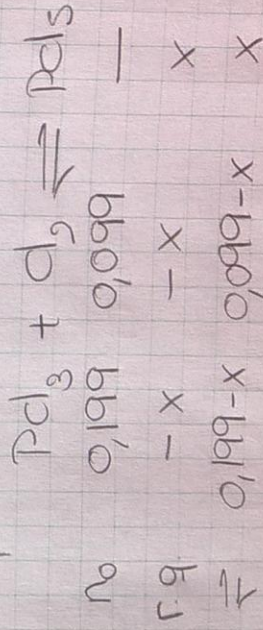 PCl3 + Cl2 ⇌ PCl5
n0 0,199 0,099 —
r.q -x -x x
⇌ 0,199-x 0,099-x x